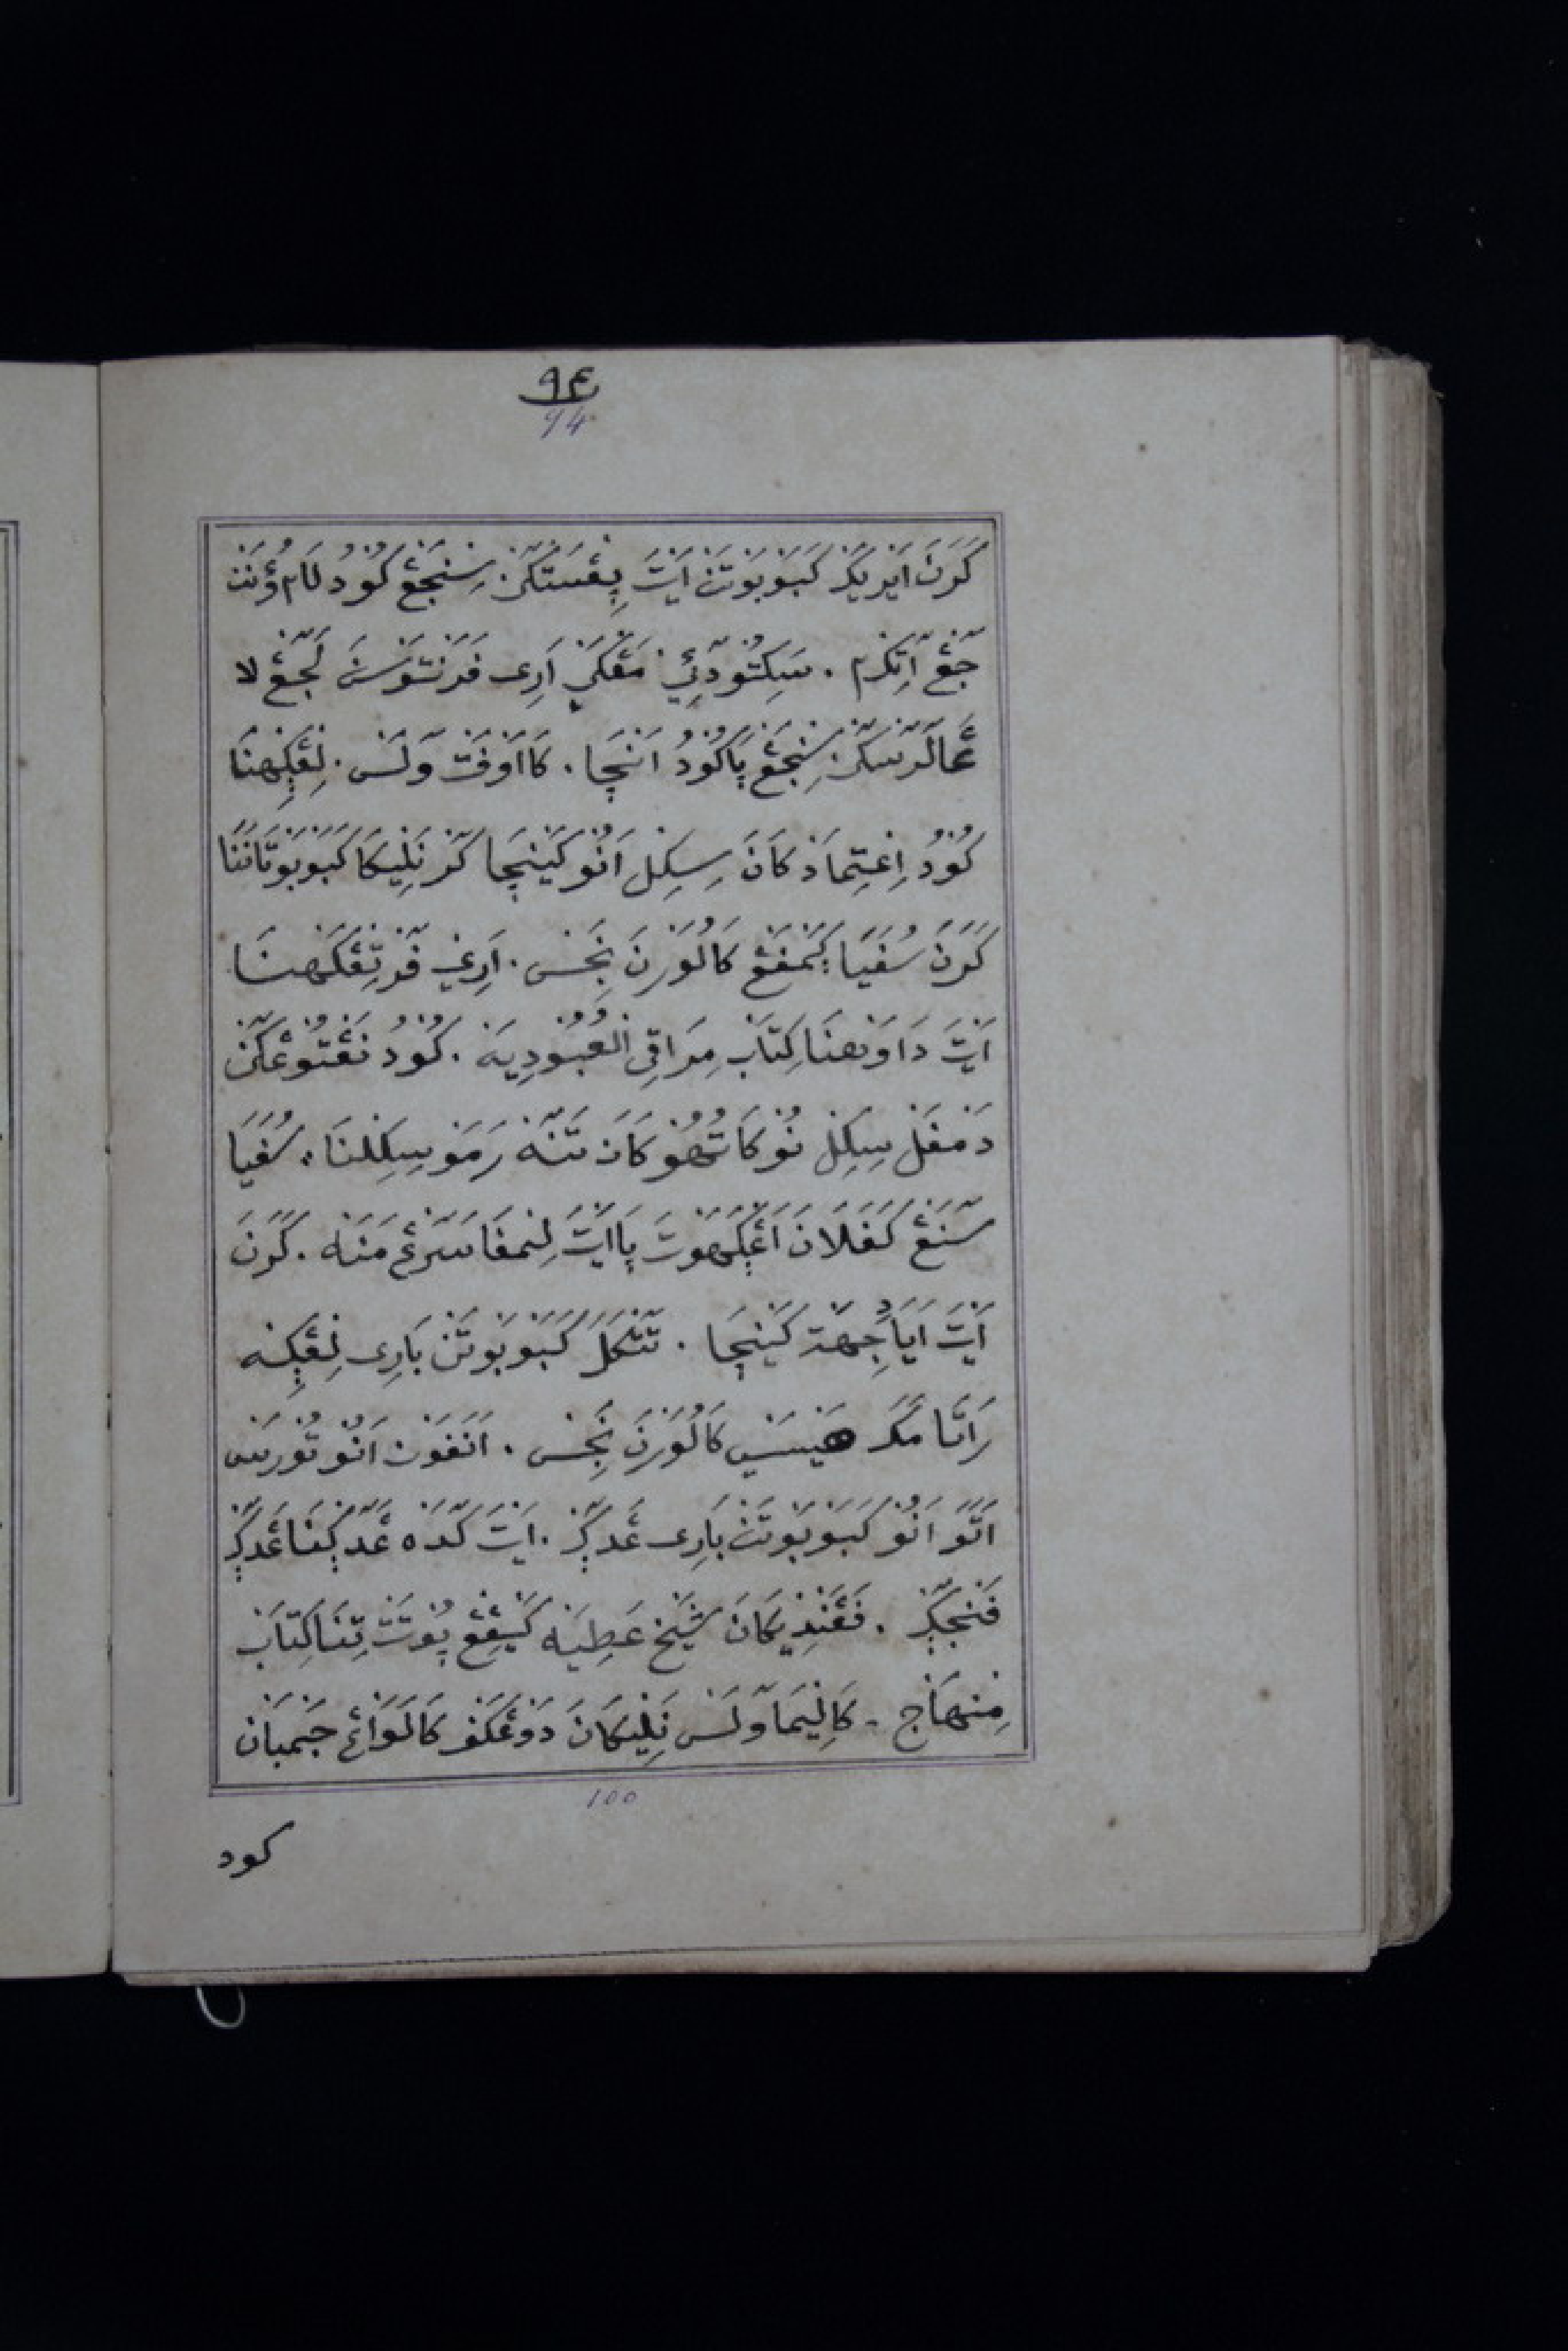 ٩٤
94
كَرَنَ اَيْرِيْكَڒْ كَبَوْبَوْتَنْ اَيْتَ بِڠْسَتْكَنْ سِنْجَڠْ كُوْدُ لَامْ وُنَنْ
جَڠْ اَتِكْرَمْ . سَكِتُوْدَيْئِ مَڠْكَنٍ اَرِى فَرَنْتَوْسَنَ لَجَڠْ لَا
عَمَالَرَسْكَنْ سِنْجَڠْ ڀَاكُوْدُ اَنْچَا . كَااَوْفَتْ وَلَسْ . لِڠْكِهْنَا
كُوْدُ اِعْتِمَادْ كَانَ سِكِلْ اَنُوْ كَيْنْچَا كَرْ نَلِيْكَا كَبَوْبَوْتَانَنَا
كَرَنَ سُفَيَا كَمْفَڠْ كَالُوَرْنَ نَجِسْ . اَرِيْ فَرْتِڠْكَهْنَا
اَيْتَ دَاوَوْهْنَا كِتَابْ مِرَاقِى الْعُبُوْدِيَهْ . كُوْدُ نَڠْتُوْڠْكَنْ
دَمْفَلْ سِكِلْ نُوْ كَاتُهُوْ كَانَ تَنَهْ رَمَوْ سِكِلْنَا . سُفَيَا
سَنَڠْ كَفَلَانَ اَڠْكَهَوْتَ ڀَااَيْتَ لِنْمْفَاسَرَڠْ مَنَهْ . كَرَنَ
اَيْتَ اَيَا جِهَةْ كَيْنْچَا . تَتْكَلَ كَبَوْبَوْتَنْ بَارِى لِڠْكِهْ
رَاتَا مَكَ هَيْسَيْ كَالُوَرْنَ نَجِسْ . اَنَفَوْنْ اَنُوْ تُوْرَسْ
اَتَوَ اَنُوْ كَبَوْبَوْتَنْ بَارِى عَدَكْ . اَيْتَ كَدَهْ عَدَكْنَا عَدَكْ
فَنْجَكْ . فَڠَنْدِيْكَانَ شَيْخْ عَطِيَهْ كَيْڠِڠْ ڀُوْتَتْ تِنَا كِتَابْ
مِنْهَاجْ . كَالِيْمَا وَلَسْ نَلِيْكَانَ دَوْڠْكَفْ كَالَوَائْ جَمْبَانْ
100
كود